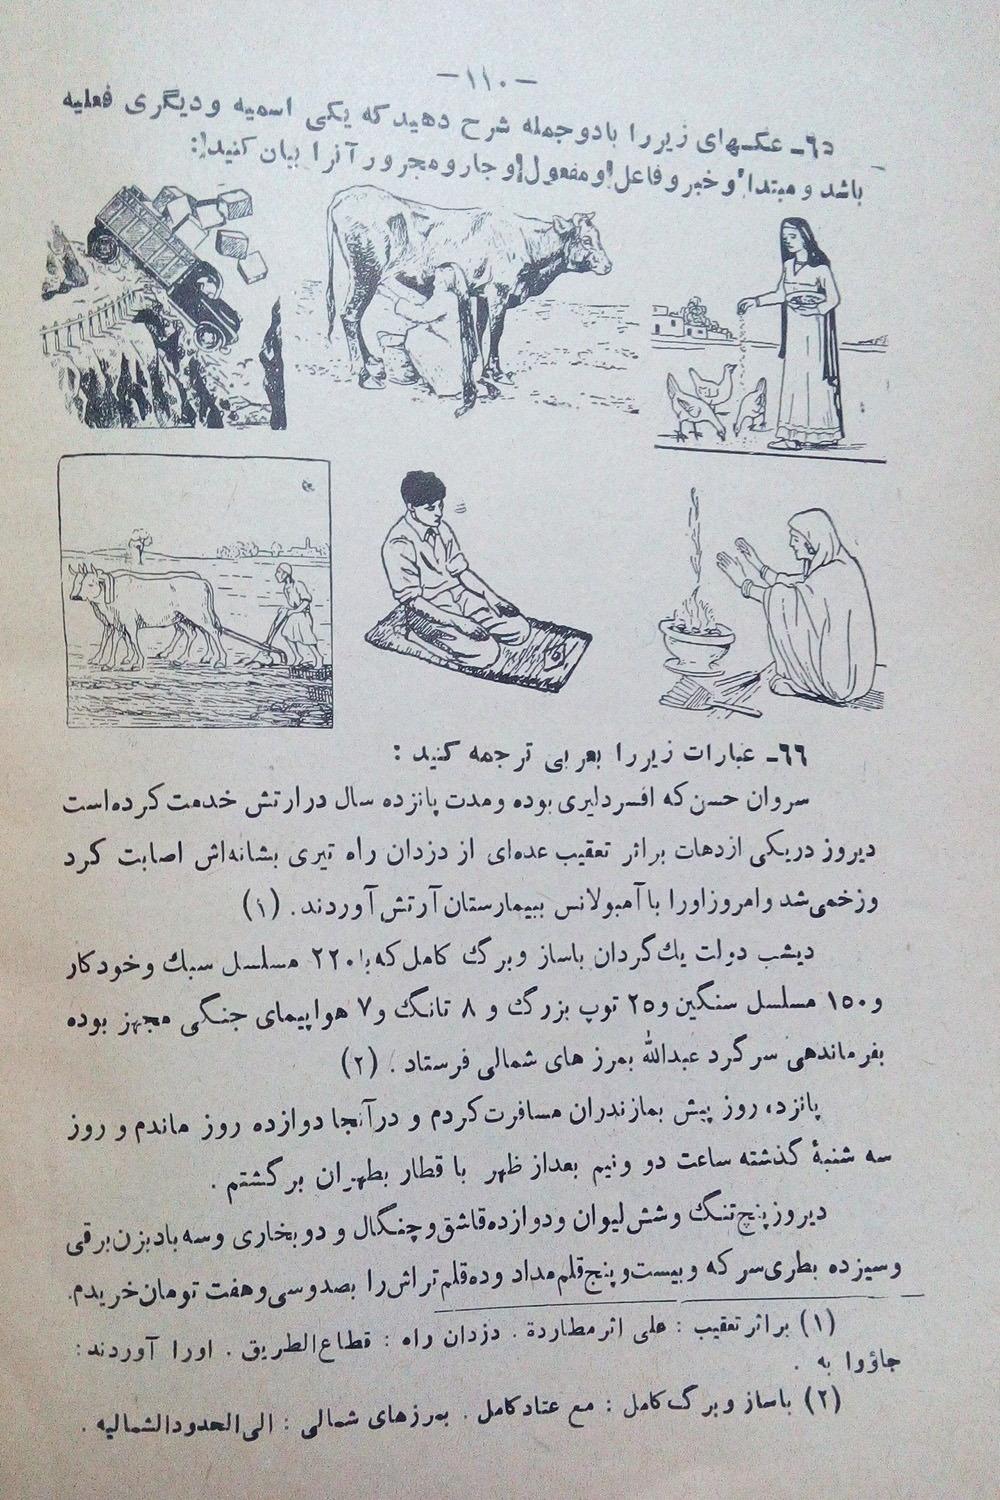 -١١٠-
٦٥- عکسهای زیر را با دو جمله شرح دهید که یکی اسمیه و دیگری فعلیه
باشد و مبتدا و خبر و فاعل و مفعول و جار و مجرور آنرا بیان کنید:
٦٦- عبارات زیر را بعربی ترجمه کنید :
سروان حسن که افسر دلیری بوده و مدت پانزده سال در ارتش خدمت کرده است
دیروز در یکی از دهات بر اثر تعقیب عده‌ای از دزدان راه تیری بشانه‌اش اصابت کرد
و زخمی شد و امروز اورا با آمبولانس ببیمارستان آرتش آوردند. (١)
دیشب دولت یك گردان باساز و برگ کامل که با ٢٢٠ مسلسل سبك و خودکار
و ١٥٠ مسلسل سنگین و ٢٥ توپ بزرگ و ٨ تانگ و ٧ هواپیمای جنگی مجهز بوده
بفرماندهی سرگرد عبدالله بمرز های شمالی فرستاد . (٢)
پانزده روز پیش بمازندران مسافرت کردم و در آنجا دوازده روز ماندم و روز
سه شنبهٔ گذشته ساعت دو و نیم بعداز ظهر با قطار بطهران برگشتم .
دیروز پنج تنگ و شش لیوان و دوازده قاشق و چنگال و دو بخاری و سه بادبزن برقی
و سیزده بطری سرکه و بیست و پنج قلم مداد و ده قلم تراش را بصد و سی و هفت تومان خریدم.
(١) بر اثر تعقیب : علی اثر مطاردة . دزدان راه : قطاع الطریق . اورا آوردند :
جاؤوا به .
(٢) باساز و برگ کامل : مع عتاد کامل . بمرزهای شمالی : الی الحدود الشمالیه .